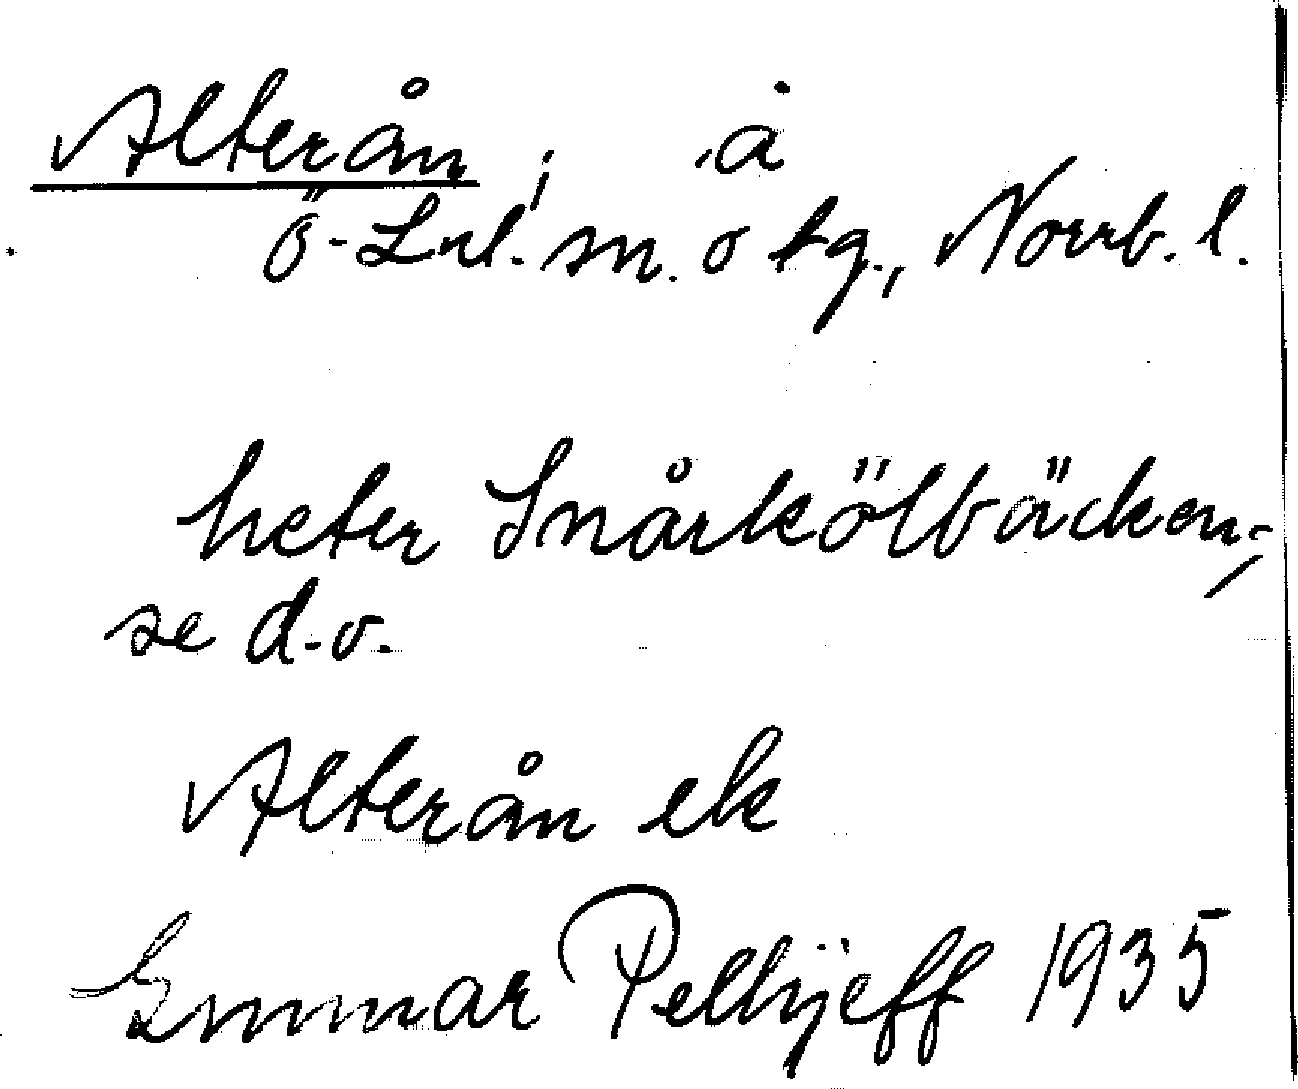 Alterån, å
Ö-Lul. sn. o tg., Norrb. l.
heter Snårkölbäcken,
se d.o.
Alterån ek
Gunnar Pellijeff 1935